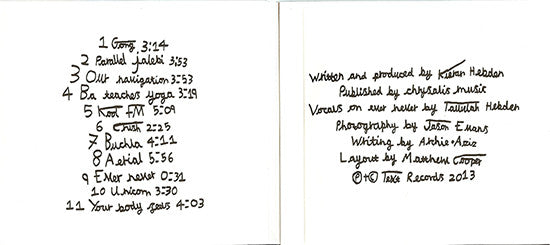 1 Gong 3:14
2 Parallel jalebi 3:53
3 Our navigation 3:53
4 Ba teaches yoga 3:19
5 Kool FM 5:09
6 Crush 2:25
7 Buchla 4:11
8 Aerial 5:56
9 Ever never 0:31
10 Unicorn 3:30
11 Your body feels 4:03
Written and produced by Kieran Hebden
Published by chrysalis music
Vocals on ever never by Tallulah Hebden
Photography by Jason Evans
Writing by Archie + Aziz
Layout by Matthew Cooper
℗+© Text Records 2013